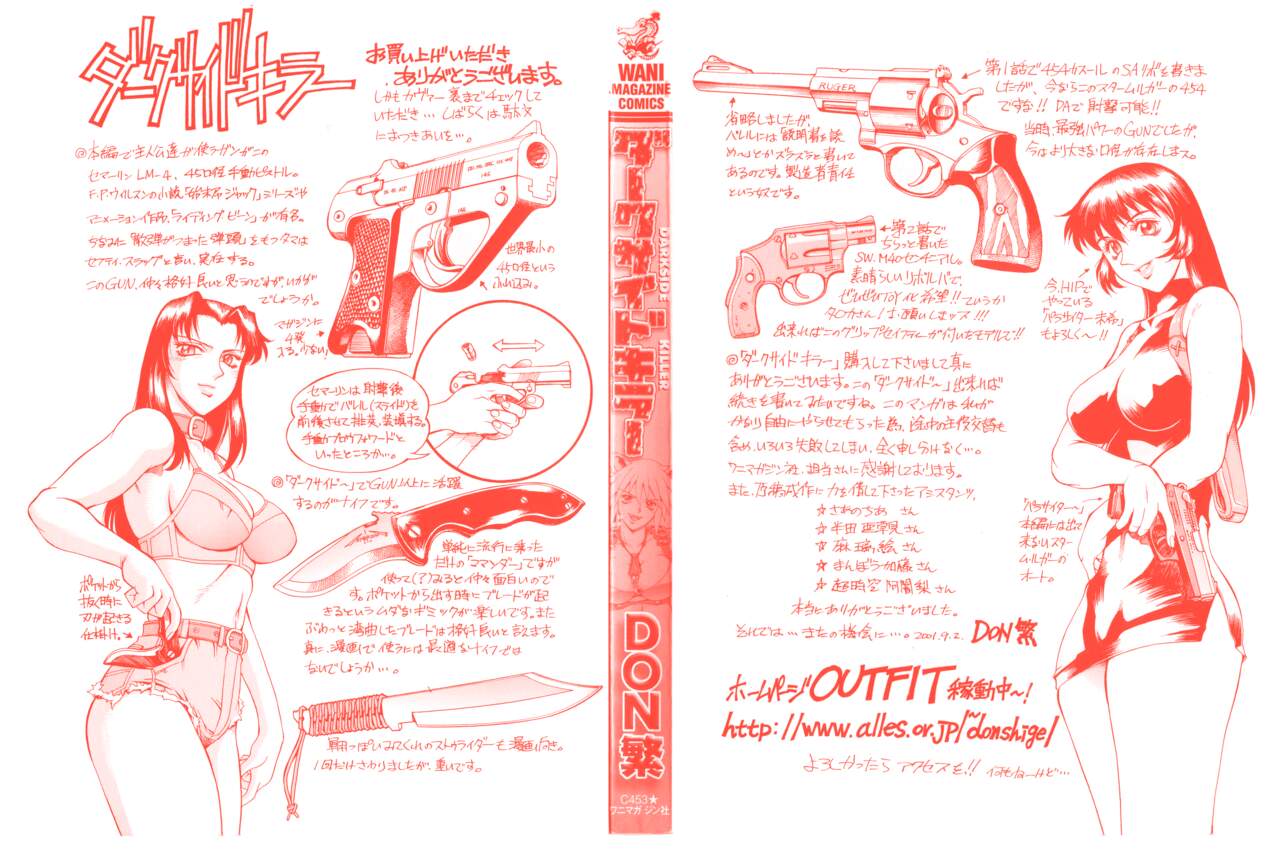 ダークサイドキラー
お買い上げいただき
ありがとうございます。
しかもカヴァー裏までチェックして
いただき…しばらくは駄文
におつきあいを…。
◎本編で主人公達が使うガンがこの
セマーリンLM-4、45口径手動ピストル。
F.P.ウィルスンの小説「始末屋ジャック」シリーズや
アニメーション作品「ライディングビーン」が有名。
ちなみに「散弾がつまった弾頭」をもつタマは
セフティ・スラッグと言い、実在する。
このGUN、仲々格好良いと思うのですが、いかが
でしょうか。
世界最小の
45口径という
ふれ込み。
マガジンに
4発
入る。少ない!
セマーリンは射撃後
手動でバレル(スライド)を
前後させて排莢、装填する。
手動ブロウフォワードと
いったところか…。
◎「ダークサイド〜」でGUN以上に活躍
するのがナイフです。
単純に流行に乗った
だけの「コマンダー」ですが
使って(?)みると仲々面白いので
す。ポケットから出す時にブレードが起
きるというムダなギミックが楽しいです。また
ぶわっと湾曲したブレードは格好良いと言えます。
真に、漫画で使うには最適なナイフでは
ないでしょうか…。
ポケットから
抜く時に
刃が起きる
仕掛け。
1回だけさわりましたが、重いです。
WANI
MAGAZINE
COMICS
ダークサイドキラー
DARKSIDE KILLER
DON繁
C453★
ワニマガジン社
RUGER
第1話で454カスールのSAリボを書きま
したが、今ならこのスタームルガーの454
ですな!! DAで射撃可能!!
当時、最強パワーのGUNでしたが、
今はより大きな口径が存在します。
省略しましたが、
バレルには「説明書を読
め〜」とかズラズラと書いて
あるのです。製造者責任
という奴です。
第2話で
ちらっと書いた
SW. M40センチニアル。
素晴らしいリボルバで、
出来ればこのグリップセイフティーが付いたモデルで!!
今、HIPで
やっている
もよろしく〜!!
◎「ダークサイドキラー」購入して下さいまして真に
ありがとうございます。この「ダークサイド〜」出来れば
続きを書いてみたいですね。このマンガは私が
かなり自由にやらせてもらった為、途中の主役交替も
含め、いろいろ失敗してしまい、全く申し分けなく…。
ワニマガジン社、担当さんに感謝しております。
また、乃夢成作に力を貸して下さったアシスタンツ、
☆さあのうあ さん
☆半田亜季貝 さん
☆麻瑠絵 さん
☆まんぼう加藤 さん
☆超時空阿闍梨 さん
本当にありがとうございました。
それでは…またの機会に…。2001.9.2. DON繁
本編には出て
来ないスター
ムルガーの
オート。
ホームページOUTFIT稼動中〜!
http://www.alles.or.jp/~donshige/
よろしかったらアクセスを!! 何もねーけど…